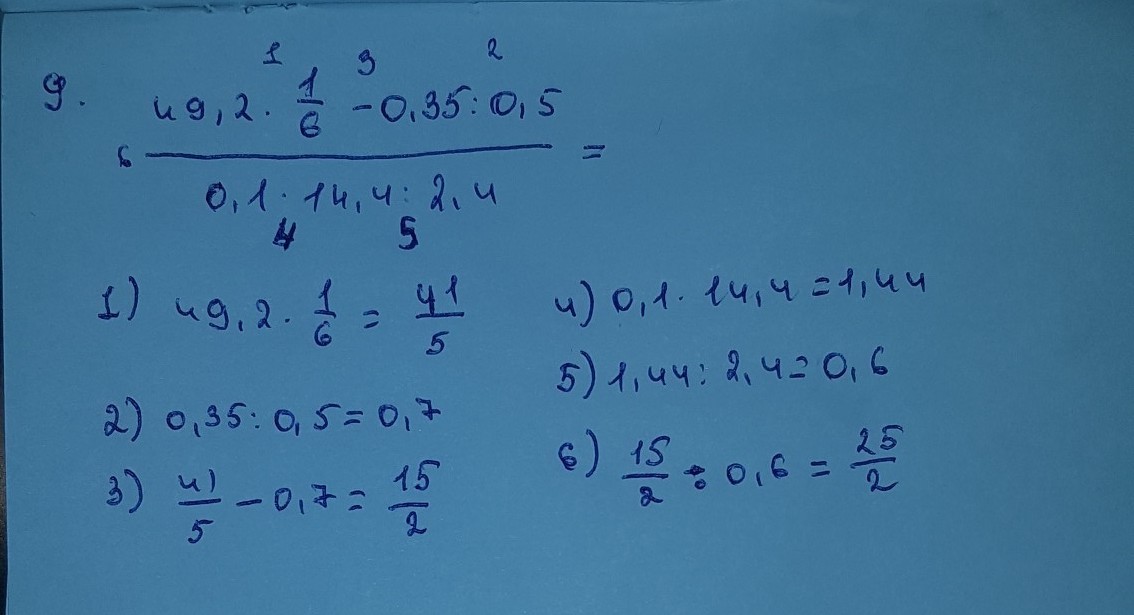 1 3 2
9. 49,2 · 1/6 - 0,35 : 0,5
6 —————————— =
0,1 · 14,4 : 2,4
4 5
1) 49,2 · 1/6 = 41/5
2) 0,35 : 0,5 = 0,7
3) 41/5 - 0,7 = 15/2
4) 0,1 · 14,4 = 1,44
5) 1,44 : 2,4 = 0,6
6) 15/2 : 0,6 = 25/2